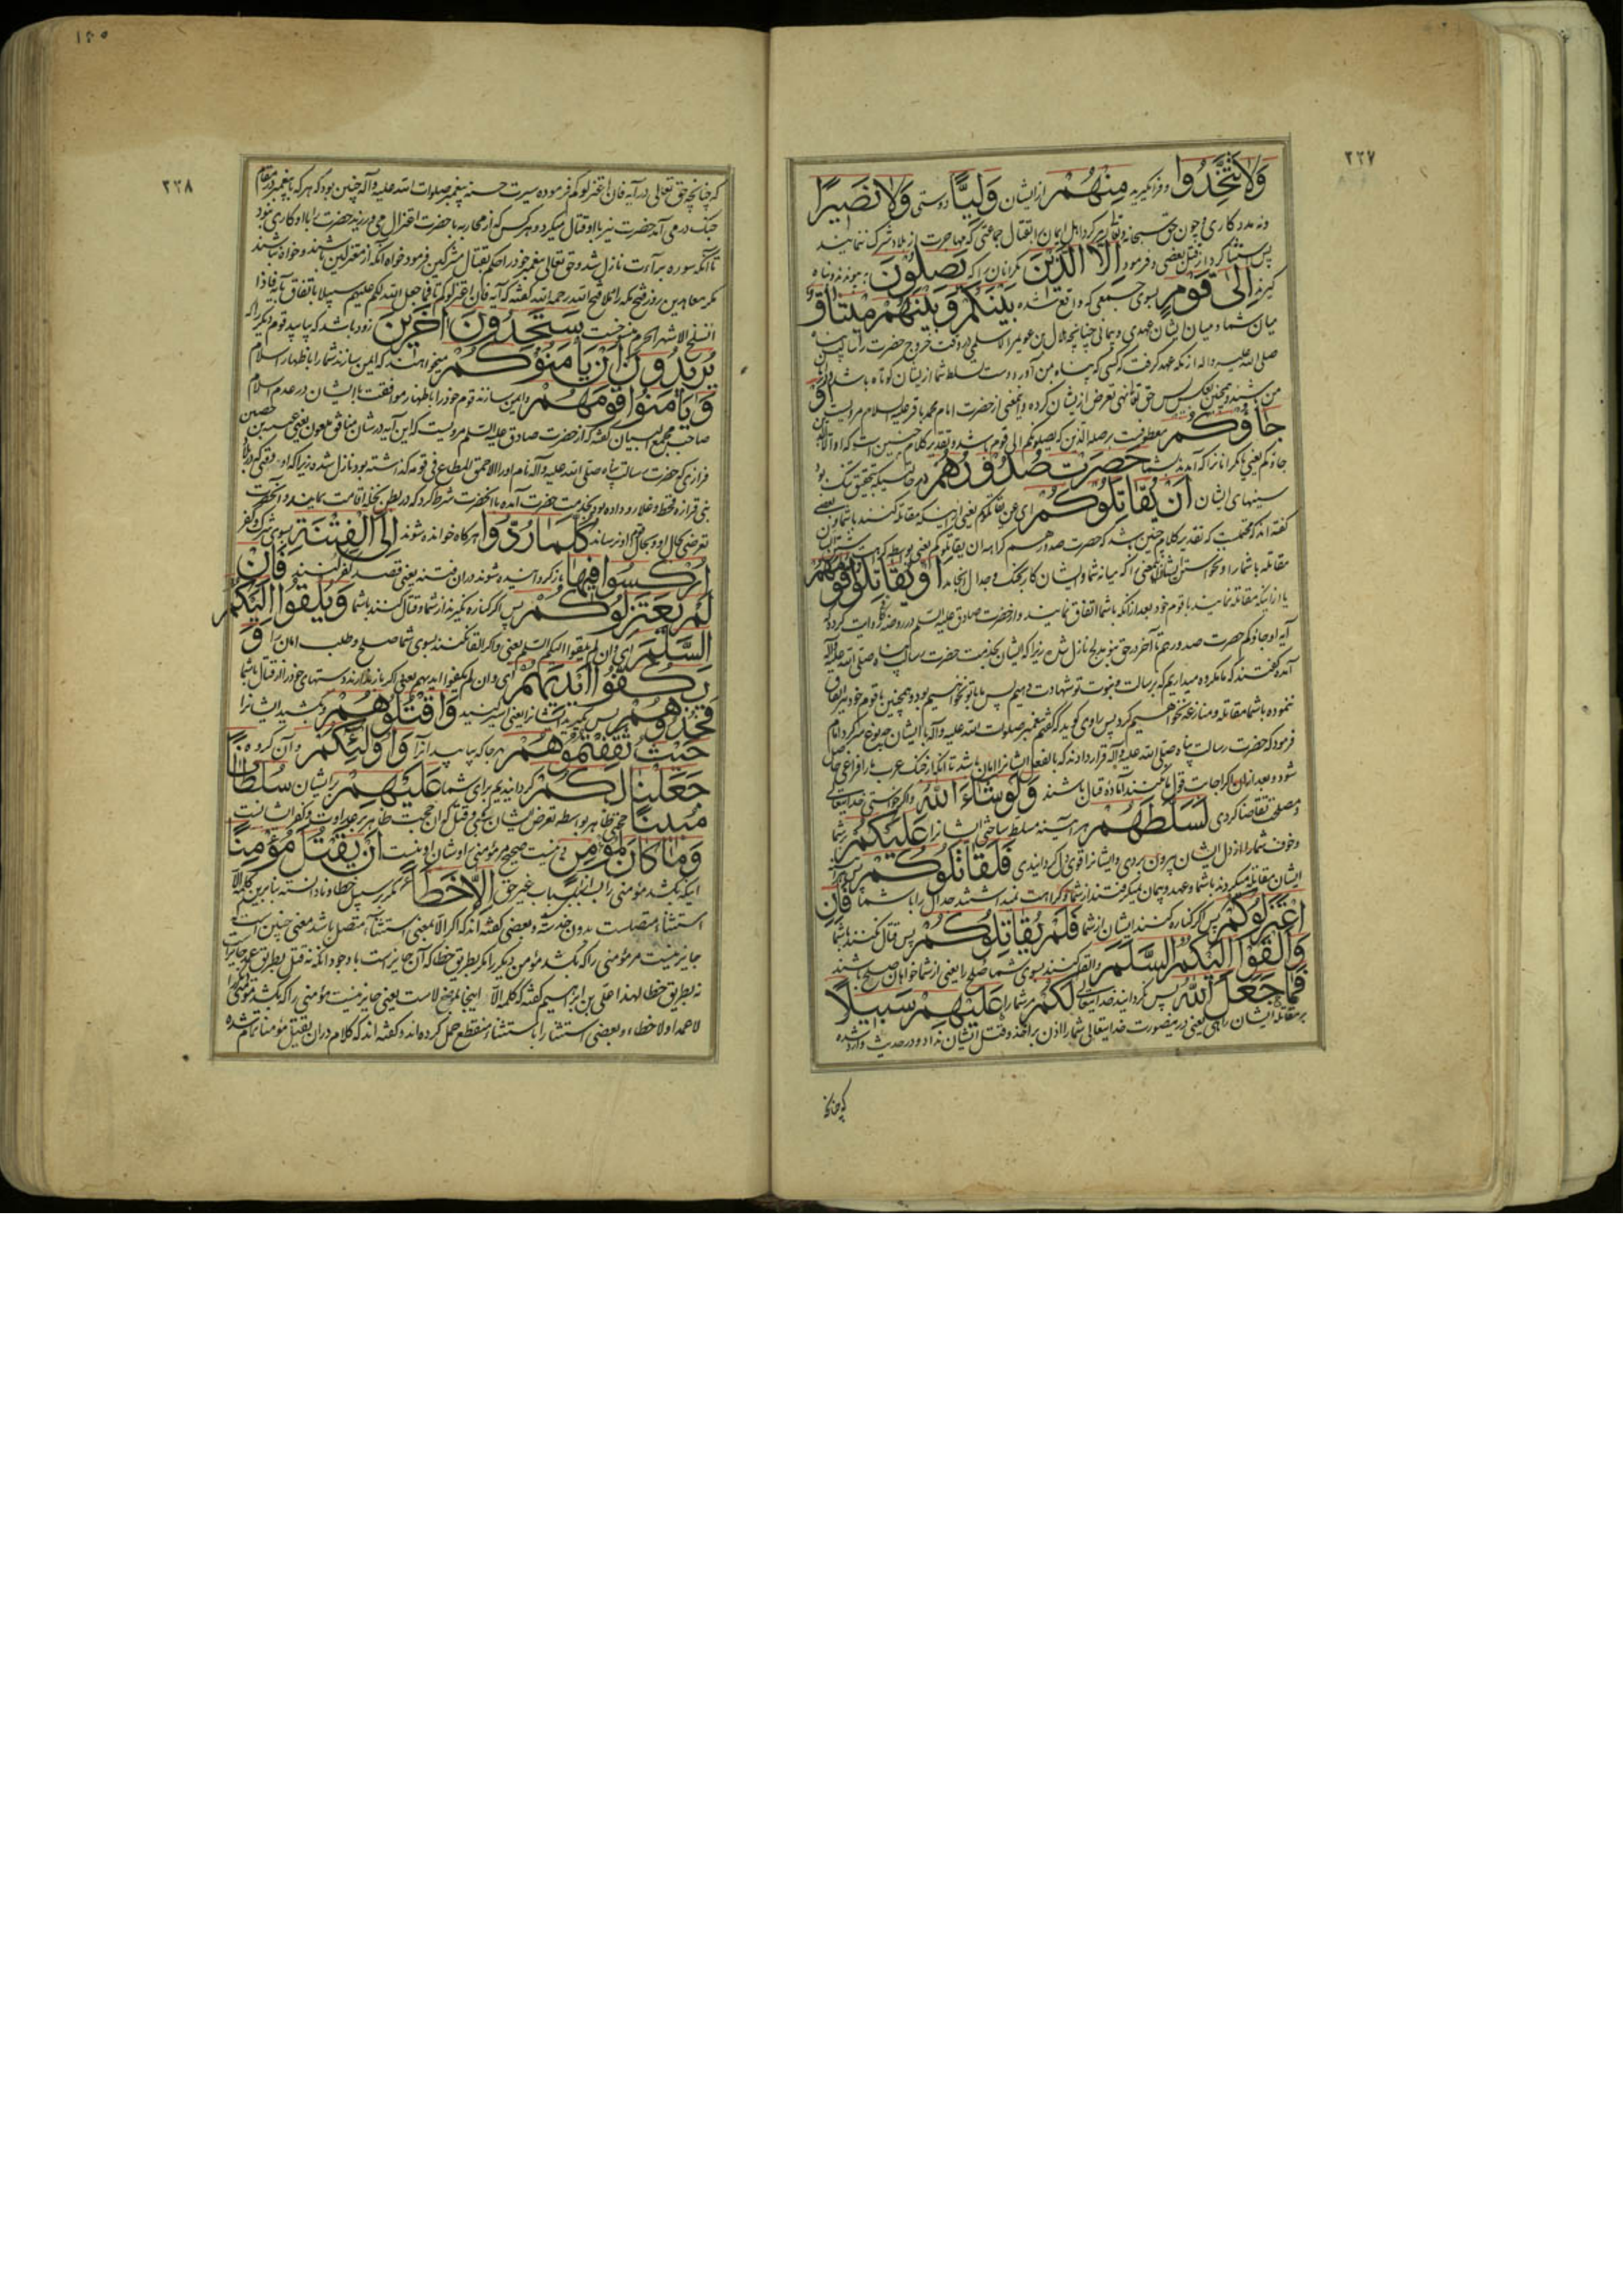 ٢٢٧
وَلَا تَتَّخِذُوا و فرا نگیرید مِنْهُمْ از ایشان وَلِيًّا دوستی وَلَا نَصِيرًا
و نه مددکاری و چون حق سبحانه و تعالی امر کرد اهل ایمان را بقتال جماعتی که مهاجرت از بلاد شرک ننمایند
پس استثنا کرد از قتل بعضی و فرمود اِلَّا الَّذِينَ مکر آنان را که يَصِلُونَ پیوندند و پناه
گیرند اِلَى قَوْمٍ بسوی جمعی که واقع شده بَيْنَكُمْ وَبَيْنَهُمْ مِيثَاقٌ
میان شما و میان ایشان عهدی و پیمانی چنانچه هلال بن عویمر الاسلمی در وقت خروج حضرت رسالت پناه
صلی الله علیه و اله از مکه عهد گرفت که کسی که پناه من آورد دست تسلط شما از ایشان کوتاه باشد
من باشند و همچنین بعکس پس حق تعالی نهی تعرض از ایشان کرده و این معنی از حضرت امام محمد باقر علیه السلام مرویست اَوْ
جَاؤُكُمْ معطوفست بر صله الذین که یصلونکم الی قوم باشد و تقدیر کلام چنین است که او الا الذین
جاؤکم یعنی یا مکر آنانرا که آمدند بشما حَصِرَتْ صُدُورُهُمْ در حالتیکه بتحقیق تنک بود
سینهای ایشان اَنْ يُقَاتِلُوكُمْ ای عن یقاتلوکم یعنی از اینکه مقاتله کنند با شما و بعضی
گفته اند که محتمل است که تقدیر کلام چنین باشد که حصرت صدورهم کراهه ان یقاتلوکم یعنی بواسطه کراهت
مقاتله با شما را و نخواستن ایشان این معنی را که میانه شما و ایشان کار بجنک و جدال انجامد اَوْ يُقَاتِلُوا قَوْمَهُمْ
یا از اینکه مقاتله نمایند با قوم خود بعد از آنکه با شما اتفاق نمایند و از حضرت صادق علیه السلم در روضه کافی روایت کرده که
آیه او جاؤکم حصرت صدورهم تا آخر در حق بنو مدلج نازل شده زیرا که ایشان بخدمت حضرت رسالت پناه صلی الله علیه و آله
آمده گفتند که ما مکروه میداریم که برسالت و نبوت تو شهادت دهیم پس ما با تو نخواهیم بود و همچنین با قوم خود نیز اتفاق
ننموده با شما مقاتله و منازعه نخواهیم کرد پس راوی گوید که گفتم پیغمبر صلوات الله علیه و آله با ایشان چه نوع سر کرد امام
فرمود که حضرت رسالت پناه صلی الله علیه و آله قرار دادند که بالفعل ایشانرا امان باشد تا آنکه از جنک عرب ما را فراغی حاصل
شود و بعد از آن اگر اجابت قول ما نکنند آماده قتال باشند وَلَوْ شَاءَ اللّٰهُ و اگر خواستی خدایتعالی
و مصلحت تقاضا کردی لَسَلَّطَهُمْ هر آینه مسلط ساختی ایشانرا عَلَيْكُمْ بر شما
و خوف شما را از دل ایشان بیرون بردی و ایشانرا قوی دل گردانیدی فَلَقَاتَلُوكُمْ پس هر آینه
ایشان مقاتله میکردند با شما و عهد و پیمان نمیگرفتند از شما و کراهت نمیداشتند جدال را با شما فَاِنِ
اعْتَزَلُوكُمْ پس اگر کناره کنند ایشان از شما فَلَمْ يُقَاتِلُوكُمْ پس قتال نکنند با شما
وَاَلْقَوْا اِلَيْكُمُ السَّلَمَ و القا کنند بسوی شما صلح را یعنی از شما خواهان صلح باشند
فَمَا جَعَلَ اللّٰهُ پس نگردانید خدایتعالی لَكُمْ مر شما را عَلَيْهِمْ سَبِيلًا
بر مقاتله ایشان راهی یعنی در اینصورت خدایتعالی شما را اذن بر اخذ و قتل ایشان نداد و در حدیث وارد شده
که چنانچه
١٥٠
٢٢٨
که چنانچه حق تعالی در آیه فان اعتزلوکم فرموده سیرت حسنه پیغمبر صلوات الله علیه و آله چنین بود که هر که با پیغمبر در مقام
جنک در می آمد حضرت نیز با او قتال میکرد و هر کس که از محاربه با حضرت اعتزال می ورزید حضرت را با او کاری نبود
تا آنکه سوره برآءت نازل شد و حق تعالی پیغمبر خود را حکم بقتال مشرکین فرمود خواه آنکه از معتزلین باشند و خواه نباشند
مکر معاهدین روز فتح مکه را ملا فتح الله رحمه الله گفته که آیه فان اعتزلوکم تا فما جعل الله لکم علیهم سبیلا باتفاق بآیه فاذا
انسلخ الاشهر الحرم منسوخست سَتَجِدُونَ اٰخَرِينَ زود باشد که بیابید قوم دیگر را که
يُرِيدُونَ اَنْ يَأْمَنُوكُمْ میخواهند که ایمن سازند شما را باظهار اسلام
وَيَأْمَنُوا قَوْمَهُمْ و ایمن سازند قوم خود را باظهار موافقت با ایشان در عدم اسلام
صاحب مجمع البیان گفته که از حضرت صادق علیه السلم مرویست که این آیه در شان منافق ملعون یعنی عیینه بن حصین
فزاری که حضرت رسالت پناه صلی الله علیه و آله نام او را الاحمق المطاع فی قومه گذاشته بود نازل شده زیرا که او وقتی که در بلاد
بنی فزاره قحط و غلا رو داده بود بخدمت حضرت آمده با آنحضرت شرط کرد که در بطن نخله اقامت نماید و آنحضرت
تعرضی بحال او و بحال قوم او نرساند كُلَّمَا رُدُّوا هرگاه خوانده شوند اِلَى الْفِتْنَةِ بسوی شرک و کفر
اُرْكِسُوا فِيهَا بازگردانیده شوند در آن فتنه یعنی قصد کفر کنند فَاِنْ
لَمْ يَعْتَزِلُوكُمْ پس اگر کناره نگیرند از شما و قتال کنند با شما وَيُلْقُوا اِلَيْكُمُ
السَّلَمَ ای ان لم یلقوا الیکم السلم یعنی و اگر القا نکنند بسوی شما صلح و طلب امان را وَ
يَكُفُّوا اَيْدِيَهُمْ ای و ان لم یکفوا ایدیهم یعنی اگر باز ندارند دستهای خود را از قتال با شما
فَخُذُوهُمْ پس بگیرید ایشانرا یعنی اسیر کنید وَاقْتُلُوهُمْ و بکشید ایشانرا
حَيْثُ ثَقِفْتُمُوهُمْ هر جا که بیابید آنرا وَاُولٰئِكُمْ و آن گروه
جَعَلْنَا لَكُمْ گردانیدیم برای شما عَلَيْهِمْ بر ایشان سُلْطَانًا
مُبِينًا حجتی ظاهر بواسطه تعرض ایشان بسبی و قتل که آن حجت ظاهر عداوت و کفر ایشانست
وَمَا كَانَ لِمُؤْمِنٍ و نیست صحیح مر مؤمنی را و شان او نیست اَنْ يَقْتُلَ مُؤْمِنًا
اینکه بکشد مؤمنی را بسببی از اسباب بغیر حق اِلَّا خَطَأً مکر بر سبیل خطا و نادانسته بنابرین کلمه الا
استثناء متصلست بدون خدشه و بعضی گفته اند که اگر الا بمعنی استثناء متصل باشد معنی چنین است که
جایز نیست مر مؤمنی را که بکشد مؤمن دیگر را مکر بطریق خطا که آن جایز است با وجود آنکه نه قتل بطریق عمد جایز است
نه بطریق خطا لهذا علی بن ابراهیم گفته که کلمه الا اینجا بمعنی لا ست یعنی جایز نیست مؤمنی را که بکشد مؤمنی دیگر را
لا عمدا و لا خطاء و بعضی استثنا را باستثناء منقطع حمل کرده اند و گفته اند که کلام در ان یقتل مؤمنا تمام شده